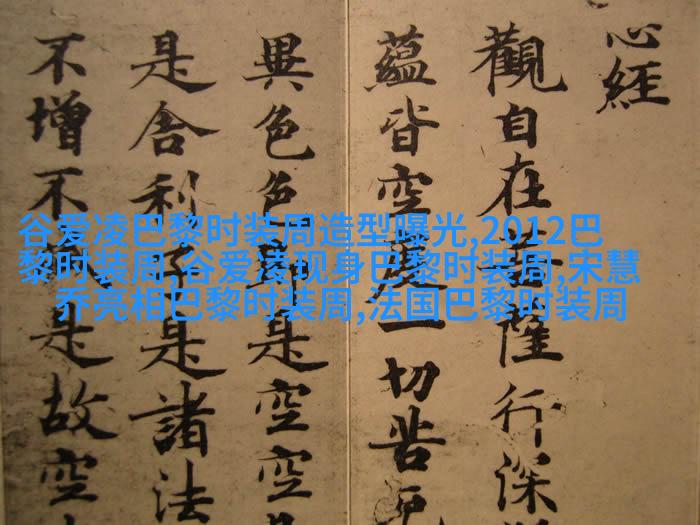 心經
觀自在菩薩行深
蘊皆空度一切苦厄
異色色即是空空
是舍利子是諸法
不增不是故空
谷爱凌巴黎时装周造型曝光,2012巴
黎时装周,谷爱凌现身巴黎时装周,宋慧
乔亮相巴黎时装周,法国巴黎时装周